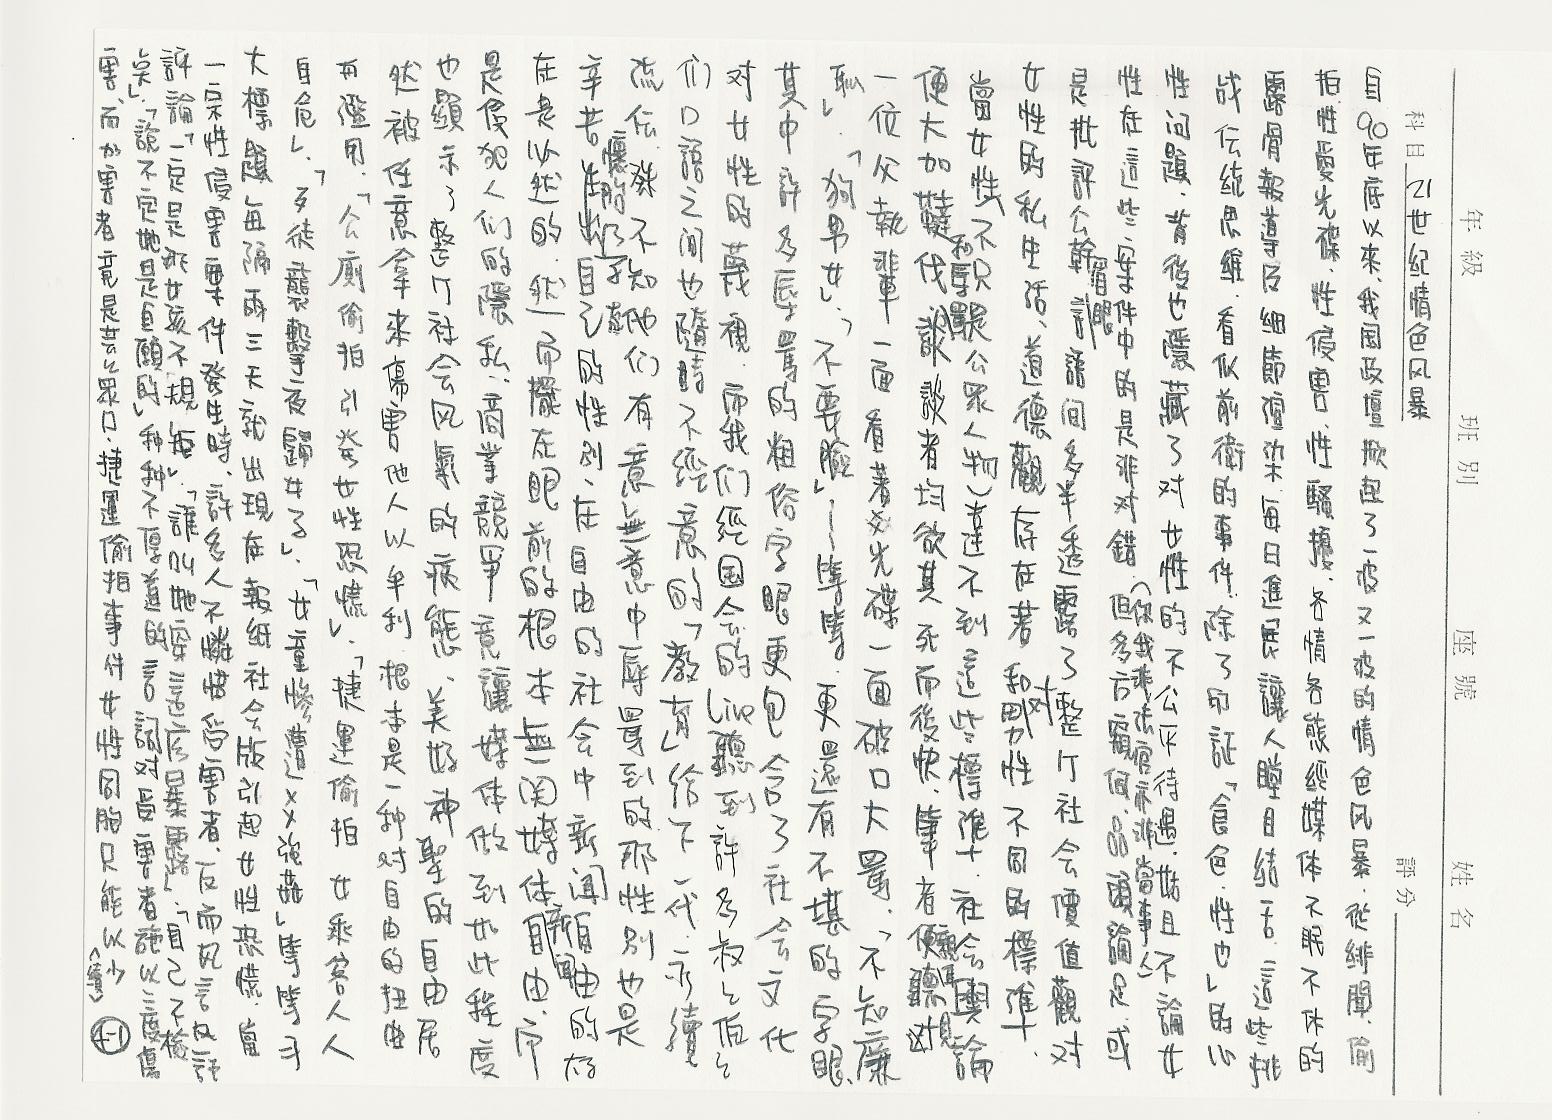 年級　班別　座號　姓名
科目 21世紀情色风暴　評分
自90年底以來,我国政壇掀起了一波又一波的情色风暴.從緋聞、偷
拍性愛光碟.性侵害、性騷擾.各情各態經媒体不眠不休的
露骨報導及細節渲染.每日進展讓人瞠目結舌.這些挑
战伝統思維.看似前衛的事件.除了印証「食色.性也」的心
性问題.背後也隱藏了对女性的不公平待遇.姑且不論女
性在這些案件中的是非对錯.(你我非法官亦非當事人)但多方窺伺.品頭論足.或
是批評公幹 言語间多半透露了对整个社会價值觀对
女性的私生活、道德觀存在著和男性不同的標準.
當女性(不只是公眾人物)達不到這些標準.社会輿論
便大加韃伐.談者均欲其死而後快.筆者便聽過
一位父執輩一面看著光碟一面破口大罵.「不知廉
恥」.「狗男女」.「不要臉」……等等.更還有不堪的字眼、
其中許多辱罵的粗俗字眼更包含了社会文化
对女性的蔑視.而我们經国会的live聽到許多叔叔伯伯
们口語之间也隨時不經意的「教育」給下一代.永續
流伝.殊不知他们有意無意中辱罵到的那性別也是
辛苦懷胎的生出自己的性別.在自由的社会中新闻自由的存
在是必然的.然而擺在眼前的根本無関媒体自由.而
是侵犯人们的隱私.商業競爭竟讓媒体做到如此程度
也顯示了整个社会风氣的病態、美好神聖的自由居
然被任意拿來傷害他人以牟利.根本是一种对自由的扭曲
和濫用.「公廁偷拍引發女性恐慌」.「捷運偷拍女乘客人人
自危」、「歹徒襲擊夜歸女子」.「女童慘遭××強姦」等等斗
大標題每隔兩三天就出現在報紙社会版引起女性恐慌.當
一宗性侵害案件發生時.許多人不憐惜受害者.反而风言风語
評論「一定是那女孩不規矩」.「誰叫她穿這麼暴露」.「自己不檢
點」.「說不定她是自願的」种种不厚道的言詞对受害者施以二度傷
害、而加害者竟是芸芸眾口.捷運偷拍事件女性同胞只能以少
(續) 4-1